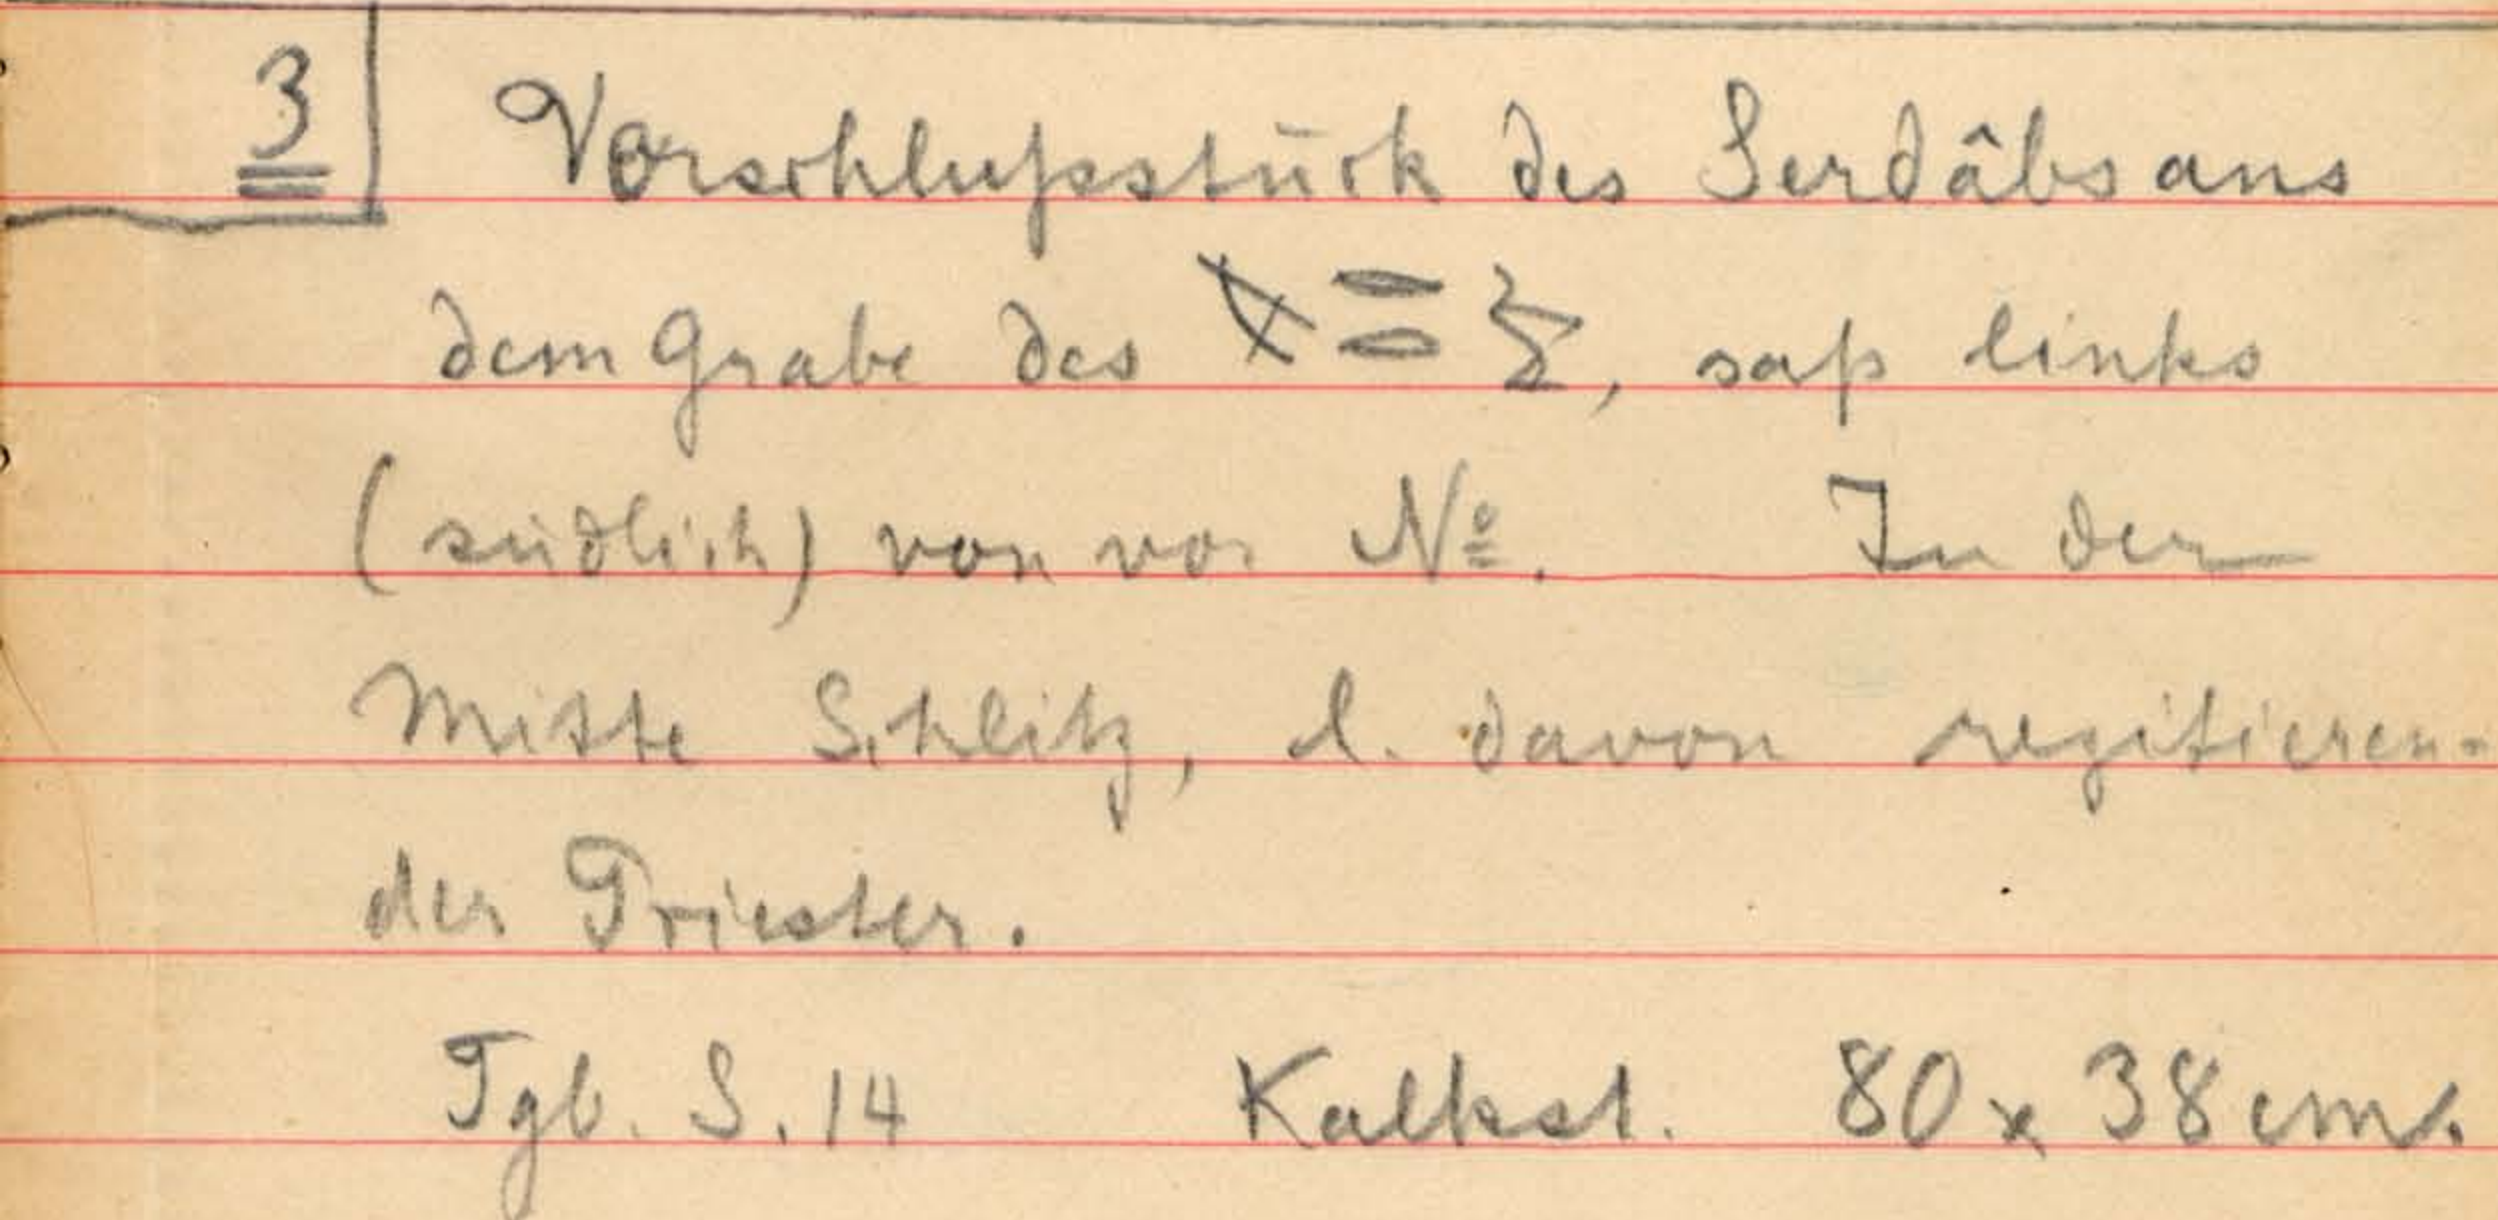 3 Verschlußstück des Serdâbs aus
dem Grabe des , saß links
(südlich) von vor No. In der
Mitte Schlitz, l. davon rezitieren-
der Priester.
Tgb. S. 14 Kalkst. 80 x 38 cm.